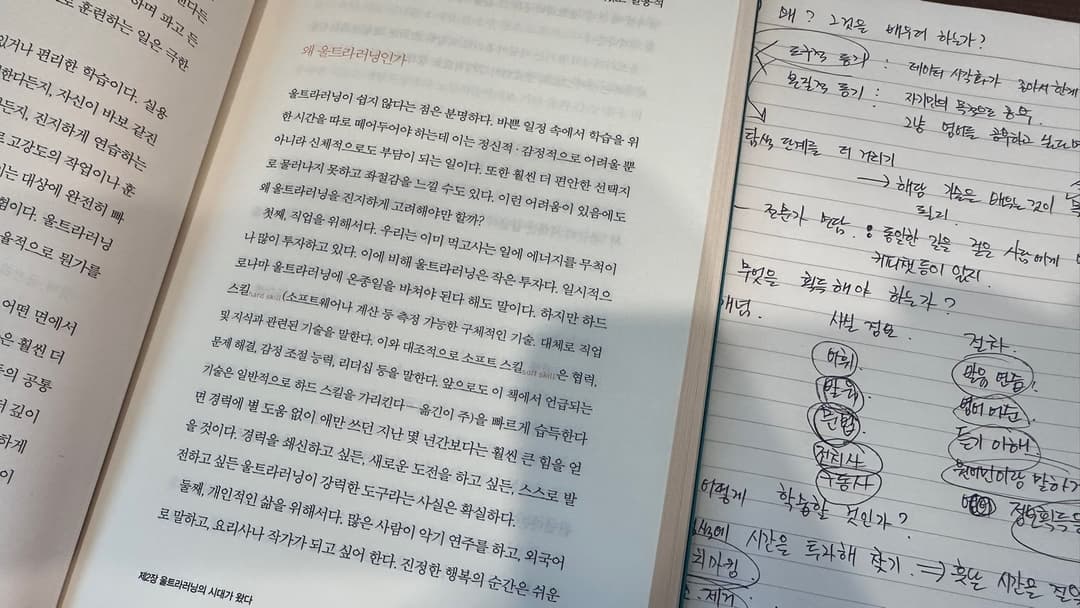 하며 파고 든
로 훈련하는 일은 극한
있거나 편리한 학습이다. 실용
한다든지, 자신이 바보 같진
든지, 진지하게 연습하는
고강도의 작업이나 훈
는 대상에 완전히 빠
험이다. 울트라러닝
율적으로 뭔가를
어떤 면에서
은 훨씬 더
의 공통
깊이
하게
이
왜 울트라러닝인가
울트라러닝이 쉽지 않다는 점은 분명하다. 바쁜 일정 속에서 학습을 위
한 시간을 따로 떼어두어야 하는데 이는 정신적·감정적으로 어려울 뿐
아니라 신체적으로도 부담이 되는 일이다. 또한 훨씬 더 편안한 선택지
로 물러나지 못하고 좌절감을 느낄 수도 있다. 이런 어려움이 있음에도
왜 울트라러닝을 진지하게 고려해야만 할까?
첫째, 직업을 위해서다. 우리는 이미 먹고사는 일에 에너지를 무척이
나 많이 투자하고 있다. 이에 비해 울트라러닝은 작은 투자다. 일시적으
로나마 울트라러닝에 온종일을 바쳐야 된다 해도 말이다. 하지만 하드
스킬hard skill(소프트웨어나 계산 등 측정 가능한 구체적인 기술. 대체로 직업
및 지식과 관련된 기술을 말한다. 이와 대조적으로 소프트 스킬soft skill은 협력,
문제 해결, 감정 조절 능력, 리더십 등을 말한다. 앞으로도 이 책에서 언급되는
기술은 일반적으로 하드 스킬을 가리킨다―옮긴이 주)을 빠르게 습득한다
면 경력에 별 도움 없이 애만 쓰던 지난 몇 년간보다는 훨씬 큰 힘을 얻
을 것이다. 경력을 쇄신하고 싶든, 새로운 도전을 하고 싶든, 스스로 발
전하고 싶든 울트라러닝이 강력한 도구라는 사실은 확실하다.
둘째, 개인적인 삶을 위해서다. 많은 사람이 악기 연주를 하고, 외국어
로 말하고, 요리사나 작가가 되고 싶어 한다. 진정한 행복의 순간은 쉬운
제2장 울트라러닝의 시대가 왔다
왜? 그것을 배우려 하는가?
도구적 동기 : 데이터 시각화가 좋아서 한게
본질적 동기 : 자기만의 목적으로 공부.
그냥 영어를 공부하고
탐색 단계를 더 거리기
→ 해당 기술을 배우는 것이
될지
전문가 면담. : 동일한 길을 걸은 사람에게
커피챗 등이 있지
무엇을 획득해야 하는가?
개념. 사실 정보. 절차.
어휘. 말을 만듦.
발음.
문법. 듣기 이해.
전치사 원어민이랑 말하기
수동사
어떻게 학습할 것인가?
시간을 투자해 찾기. ⇒ 훗날 시간을
벤치마킹.
제거